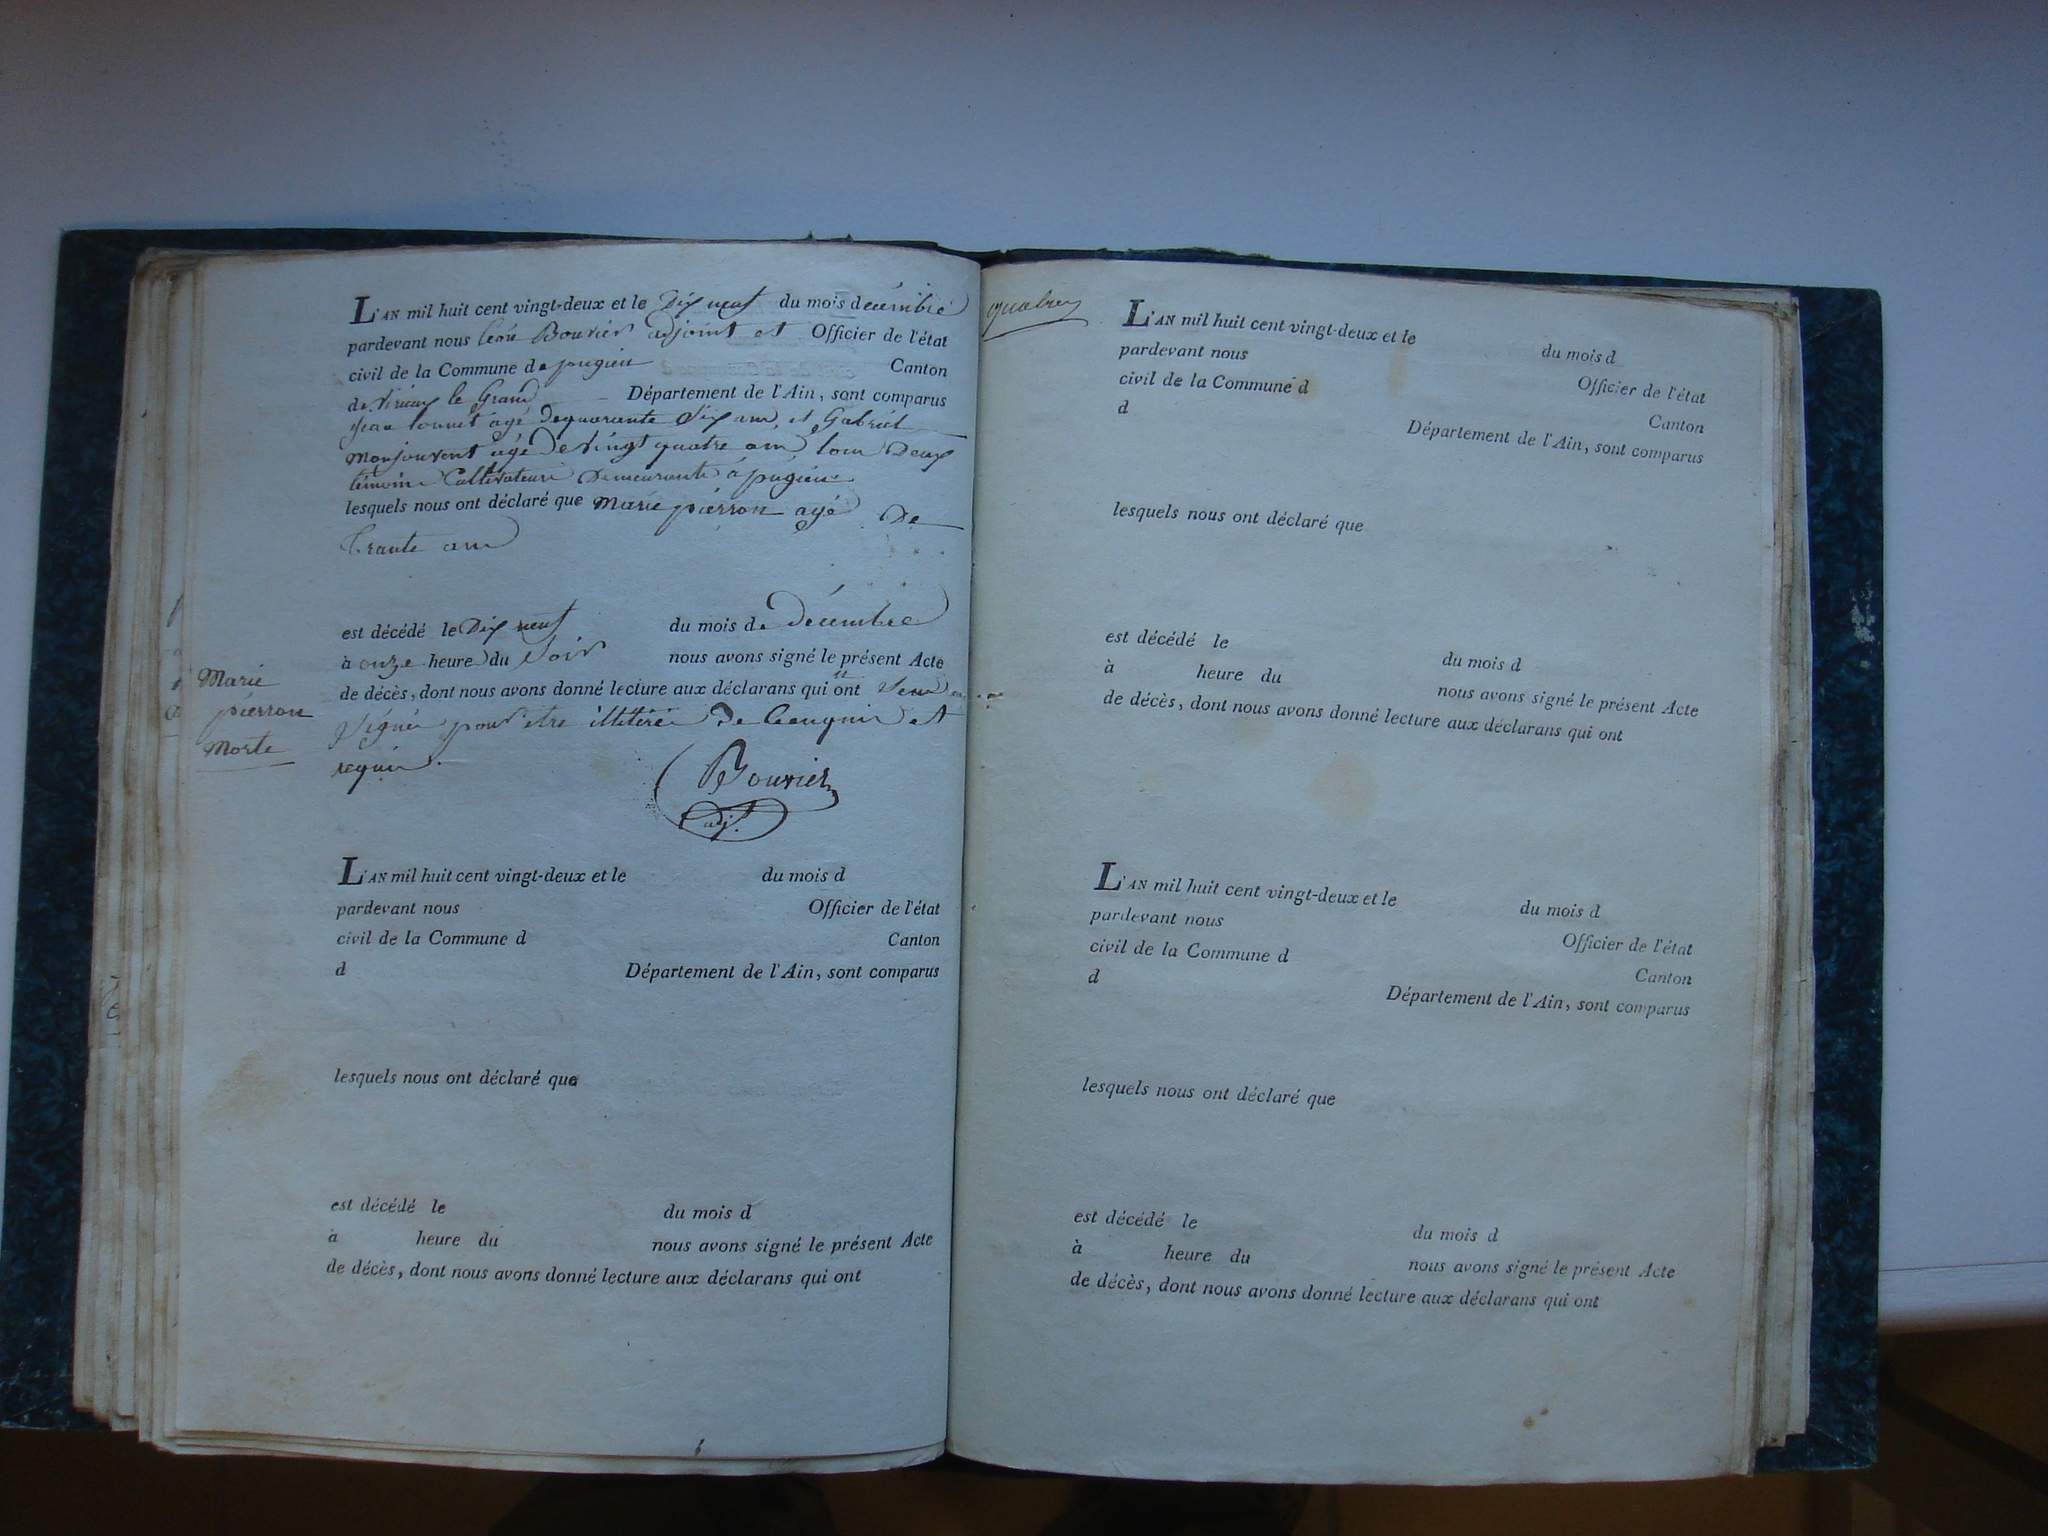 L'AN mil huit cent vingt-deux et le Dix neuf du mois decémbre
pardevant nous Bouvier adjoint et Officier de l'état
civil de la Commune de pugieu Canton
de virieux le Grand Département de l'Ain, sont comparus
jean agé dequarante Six ans et Gabriel
Monjouvent agé de vingt quatre ans tous Deux
témoins Cultivateurs Demeurants à pugieu
lesquels nous ont déclaré que Marie piérron agé De
trante ans
est décédé le Dix neuf du mois de décembre
à onze heure du Soir nous avons signé le présent Acte
de décès, dont nous avons donné lecture aux déclarans qui ont
Signér pour etre illitéré de et
requis.
Marie
piérron
Morte
Bouvier
adj.
L'AN mil huit cent vingt-deux et le du mois d
pardevant nous Officier de l'état
civil de la Commune d Canton
d Département de l'Ain, sont comparus
lesquels nous ont déclaré que
est décédé le du mois d
à heure du nous avons signé le présent Acte
de décès, dont nous avons donné lecture aux déclarans qui ont
L'AN mil huit cent vingt-deux et le du mois d
pardevant nous Officier de l'état
civil de la Commune d Canton
d Département de l'Ain, sont comparus
lesquels nous ont déclaré que
est décédé le du mois d
à heure du nous avons signé le présent Acte
de décès, dont nous avons donné lecture aux déclarans qui ont
L'AN mil huit cent vingt-deux et le du mois d
pardevant nous Officier de l'état
civil de la Commune d Canton
d Département de l'Ain, sont comparus
lesquels nous ont déclaré que
est décédé le du mois d
à heure du nous avons signé le présent Acte
de décès, dont nous avons donné lecture aux déclarans qui ont